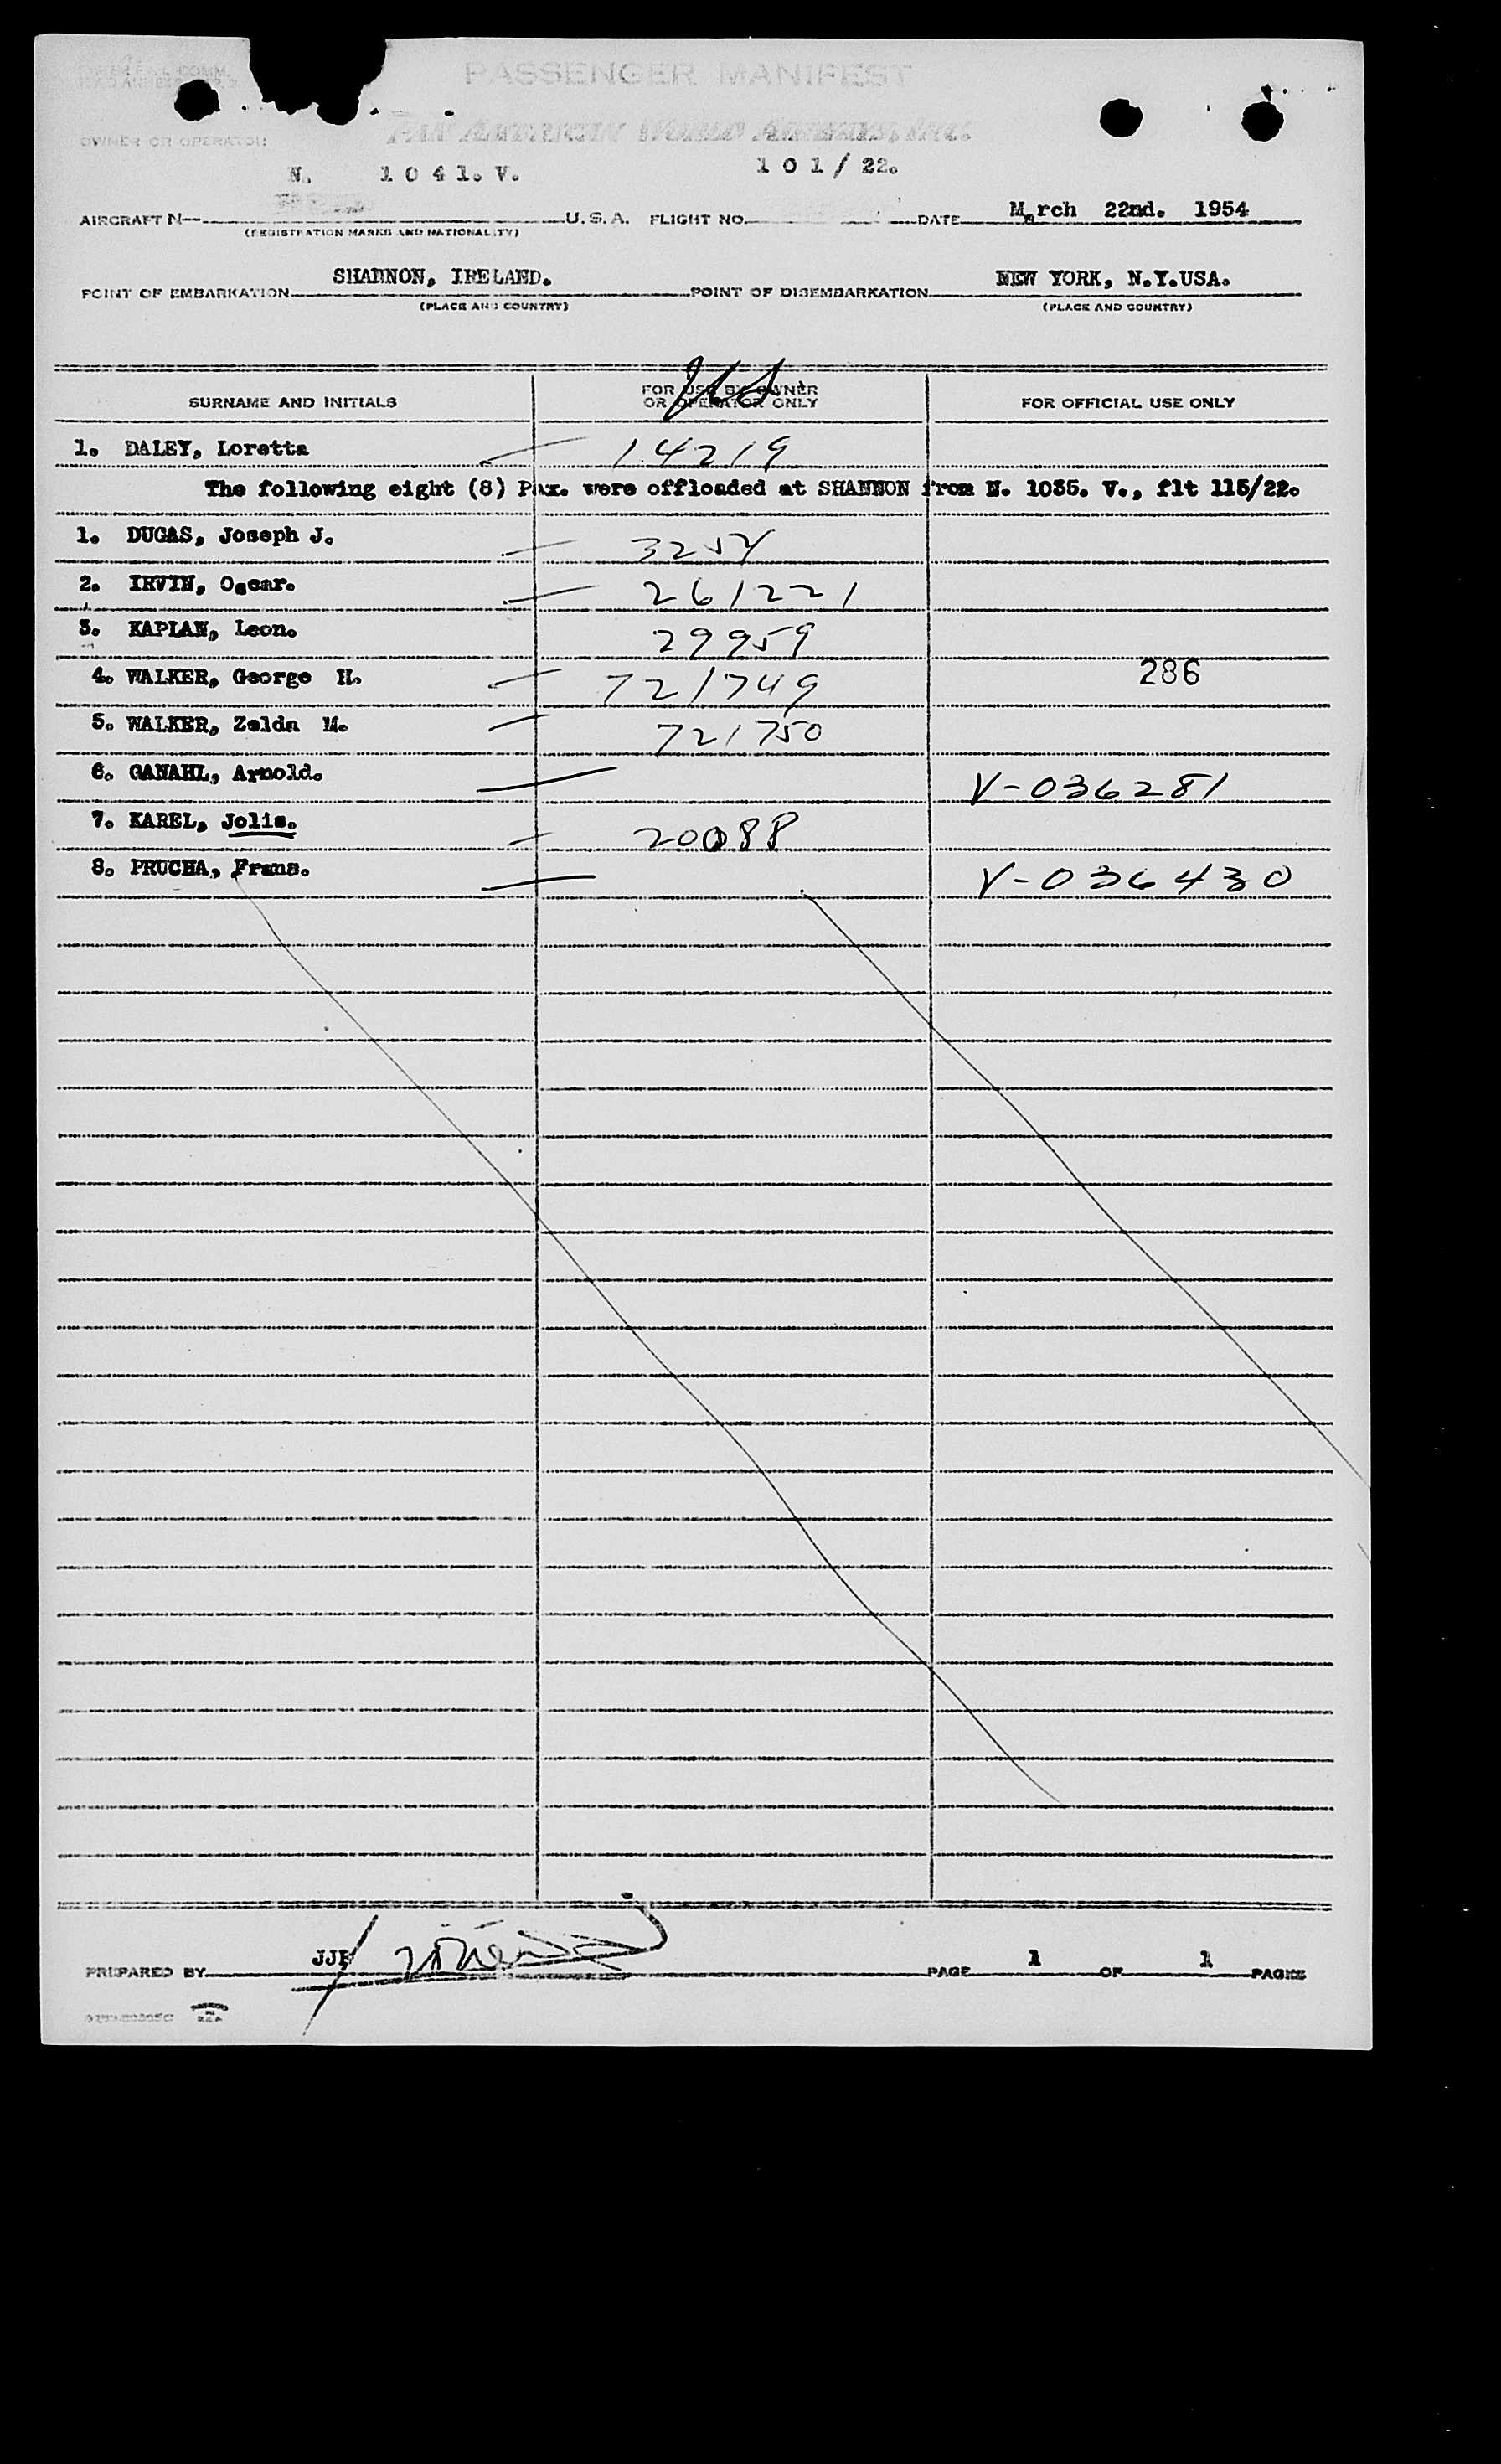 PASSENGER MANIFEST
OWNER OR OPERATOR
N. 1041. V. 101/22.
AIRCRAFT N— U.S.A. FLIGHT NO. DATE March 22nd. 1954
(REGISTRATION MARKS AND NATIONALITY)
POINT OF EMBARKATION SHANNON, IRELAND. POINT OF DISEMBARKATION NEW YORK, N.Y.USA.
(PLACE AND COUNTRY) (PLACE AND COUNTRY)
SURNAME AND INITIALS FOR USE BY OWNER OR OPERATOR ONLY FOR OFFICIAL USE ONLY
1. DALEY, Loretta 14219
The following eight (8) Pax. were offloaded at SHANNON from N. 1035. V., flt 115/22.
1. DUGAS, Joseph J. 3254
2. IRVIN, Oscar. 261221
3. KAPLAN, Leon. 29959
286
4. WALKER, George H. 721749
5. WALKER, Zelda M. 721750
6. GANAHL, Arnold. V-036281
7. KAREL, Jolis. 20088
8. PRUCHA, Frans. V-036430
PREPARED BY PAGE 1 OF 1 PAGES